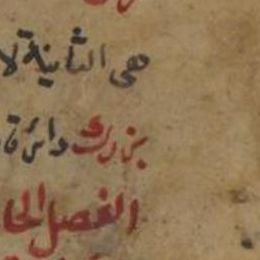 هى الثانية لا
بزرك دائرة
الفصل الحا